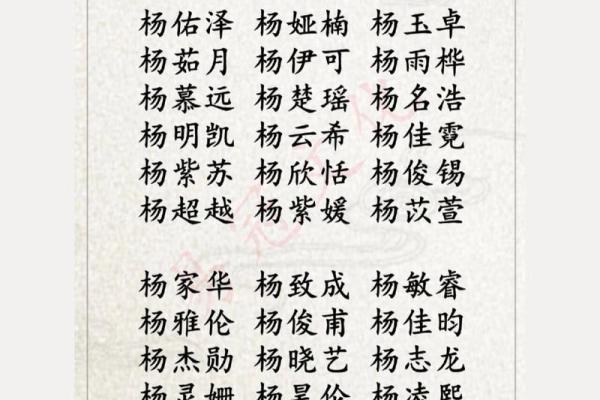 杨佑泽 杨娅楠 杨玉卓
杨茹月 杨伊可 杨雨桦
杨慕远 杨楚瑶 杨名浩
杨明凯 杨云希 杨佳霓
杨紫苏 杨欣恬 杨俊锡
杨超越 杨紫媛 杨苡萱
杨家华 杨致成 杨敏睿
杨雅伦 杨俊甫 杨佳昀
杨杰勋 杨晓艺 杨志龙
杨灵姗 杨昊伦 杨凌熙